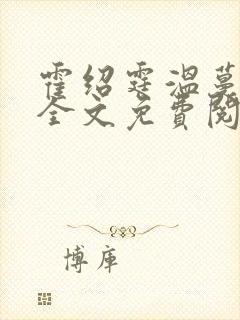 霍绍霆温蔓
全文免费阅
博库